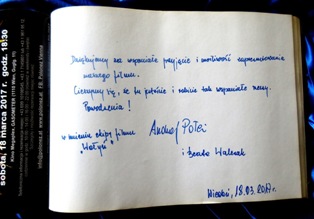 sobota, 18 marca 2017 r. godz. 18:30
Dziękujemy za wspaniałe przyjęcie i możliwość zaprezentowania
naszego filmu.
Cieszymy się, że tu jesteście i robicie tak wspaniałe rzeczy.
Powodzenia!
w imieniu ekipy filmu
"Wołyń"
Andrzej Połeć
i Beata Walczak
Wiedeń, 18.03.2017r.